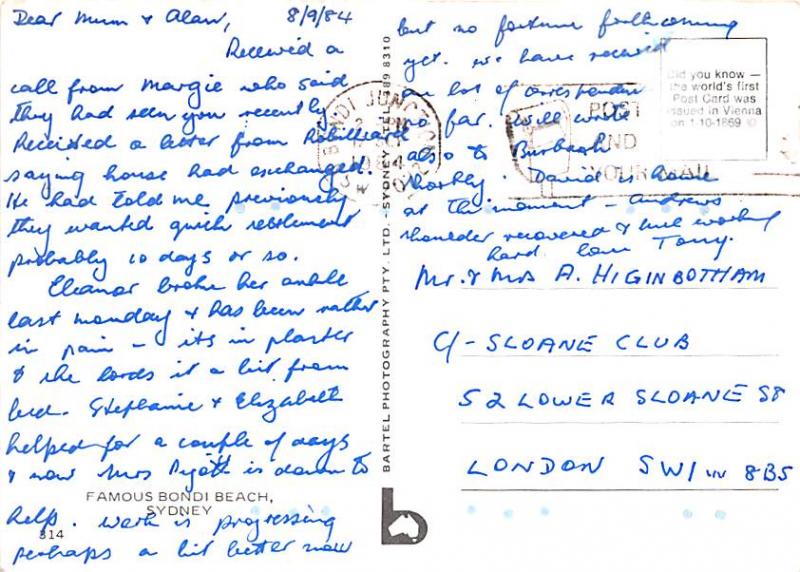 Dear Mum & Alan, 8/9/84
Received a
call from Margie who said
they had seen you recently
Received a letter from Robilliard
saying house had exchanged.
He had told me previously
they wanted quick settlement
probably 10 days or so.
Eleanor broke her ankle
last monday & has been rather
in pain – its in plaster
& she lords it a bit from
bed. Stephanie & Elizabeth
helped for a couple of days
& now Mrs Pigott is down to
help. Work is progressing
perhaps a bit better now
but no fortune forthcoming
yet. We have received
a lot of
so far. Will write
also to Burbagh
shortly. David is home
at the moment – Andrews
shoulder recovered & he working
hard. love Tony.
Mr. & Mrs A. HIGINBOTHAM
C/- SLOANE CLUB
52 LOWER SLOANE ST
LONDON SW1W 8BS
FAMOUS BONDI BEACH,
SYDNEY
314
BARTEL PHOTOGRAPHY PTY. LTD. SYDNEY TEL 389 8310
BONDI JUNCTION
POST
AND
YOUR MAIL
Did you know —
the world's first
Post Card was
issued in Vienna
on 1-10-1869
b